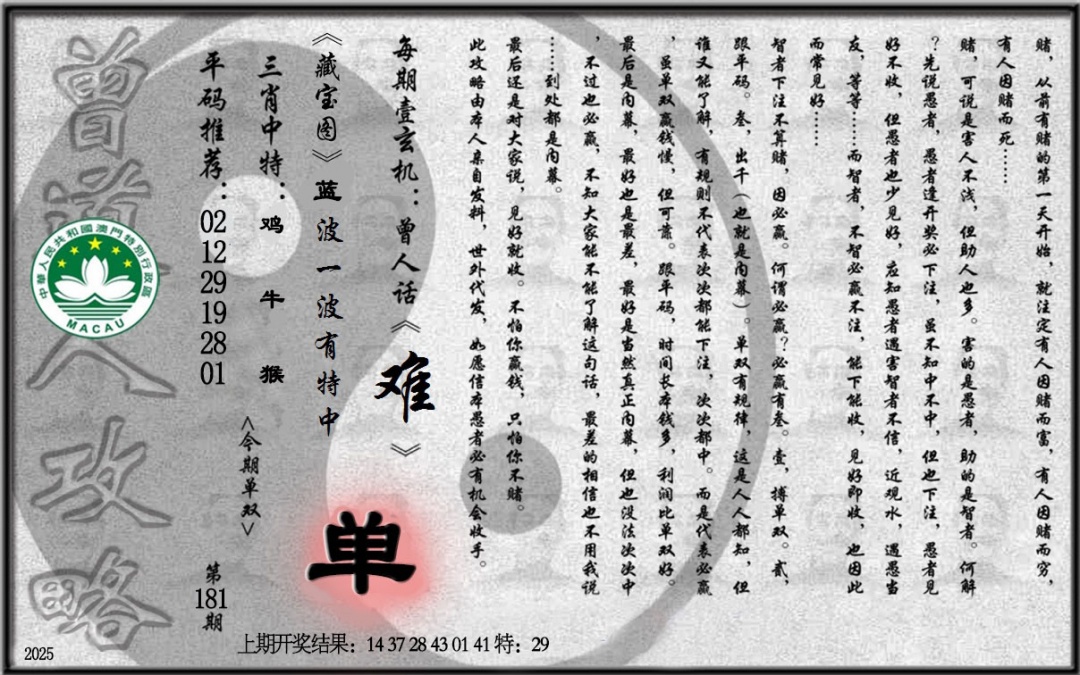 赌，从前有赌的第一天开始，就注定有人因赌而富，有人因赌而穷，
有人因赌而死……
赌，可说是害人不浅，但助人也多。害的是愚者，助的是智者。何解
？先说愚者，愚者逢开奖必下注，虽不知中不中，但也下注，愚者见
好不收，但愚者也少见好，应知愚者遇害智者不信，近观水，遇愚当
友，等等……而智者，不智必赢不注，能下能收，见好即收，也因此
而常见好……
智者下注不算赌，因必赢。何谓必赢？必赢有叁。壹，搏单双。贰，
跟平码。叁，出千（也就是内幕）。单双有规律，这是人人都知，但
谁又能了解，有规则不代表次次都能下注，次次都中。而是代表必赢
，虽单双赢钱慢，但可靠。跟平码，时间长本钱多，利润比单双好。
最后是内幕，最好也是最差，最好是当然真正内幕，但也没法次次中
，不过也必赢，不知大家能不能了解这句话，最差的相信也不用我说
……到处都是内幕。
最后还是对大家说，见好就收。不怕你赢钱，只怕你不赌。
此攻略由本人亲自发料，世外代发，如愿信本愚者必有机会收手。
每期壹玄机：曾人话《难》
《藏宝图》蓝波一波有特中
三肖中特：鸡 牛 猴
平码推荐：02 12 29 19 28 01
<今期单双>
单
第
181
期
曾道人攻略
中華人民共和國澳門特別行政區
MACAU
上期开奖结果：14 37 28 43 01 41 特：29
2025